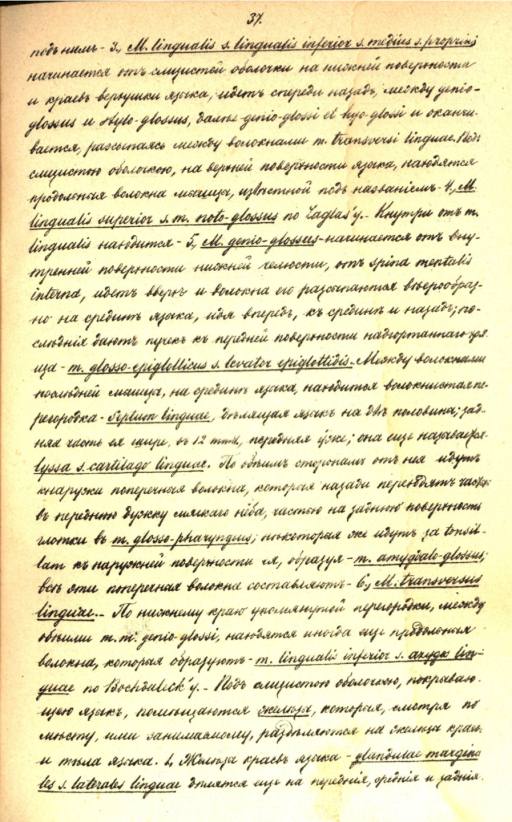 37.
подъ нимъ - 3, M. lingualis s. lingualis inferior s. medius s. proprius
начинается отъ слизистой оболочки на нижней поверхности
и краевъ верхушки языка, идетъ спереди назадъ, между genio-
glossus и stylo-glossus, далѣе genio-glossi et hyo-glossi и оканчи-
вается, разсыпаясь между волокнами m. transversi linguae. Подъ
слизистою оболочкою, на верхней поверхности языка, находятся
продольныя волокна мышцы, извѣстной подъ названіемъ - 4, M.
lingualis superior s. m. noto-glossus по Zaglas'у. Кнутри отъ m.
lingualis находится - 5, M. genio-glossus - начинается отъ вну-
тренней поверхности нижней челюсти, отъ spina mentalis
interna, идетъ вверхъ и волокна его разсыпаются вѣерообраз-
но на срединѣ языка, идя впередъ, къ срединѣ и назадъ; по-
слѣднія даютъ пучекъ къ передней поверхности надгортаннаго хря-
ща - m. glosso-epiglotticus s. levator epiglottidis. Между волокнами
послѣдней мышцы, на срединѣ языка, находится волокнистая пе-
регородка - septum linguae, дѣлящая языкъ на двѣ половины; зад-
няя часть ея шире, въ 12 mm, передняя уже; она еще называется
lyssa s. cartilago linguae. По обѣимъ сторонамъ отъ нея идутъ
кнаружи поперечныя волокна, которыя назади переходятъ частью
въ переднюю дужку мягкаго нёба, частью на заднюю поверхность
глотки въ m. glosso-pharyngeus; нѣкоторыя же идутъ за tonsil-
lam къ наружней поверхности ея, образуя - m. amygdalo-glossus;
всѣ эти поперечныя волокна составляютъ - 6, M. transversus
linguae. - По нижнему краю упомянутой перегородки, между
обѣими m. m. genio-glossi, находятся иногда еще продольныя
волокна, которыя образуютъ - m. lingualis inferior s. azygos lin-
guae по Bochdaleck'у. - Подъ слизистою оболочкою, покрываю-
щею языкъ, помѣщаются железы, которыя, смотря по
мѣсту, ими занимаемому, раздѣляются на железы краевъ
и тѣла языка. 1, Железы краевъ языка - glandulae margina-
les s. laterales linguae дѣлятся еще на переднія, среднія и заднія.